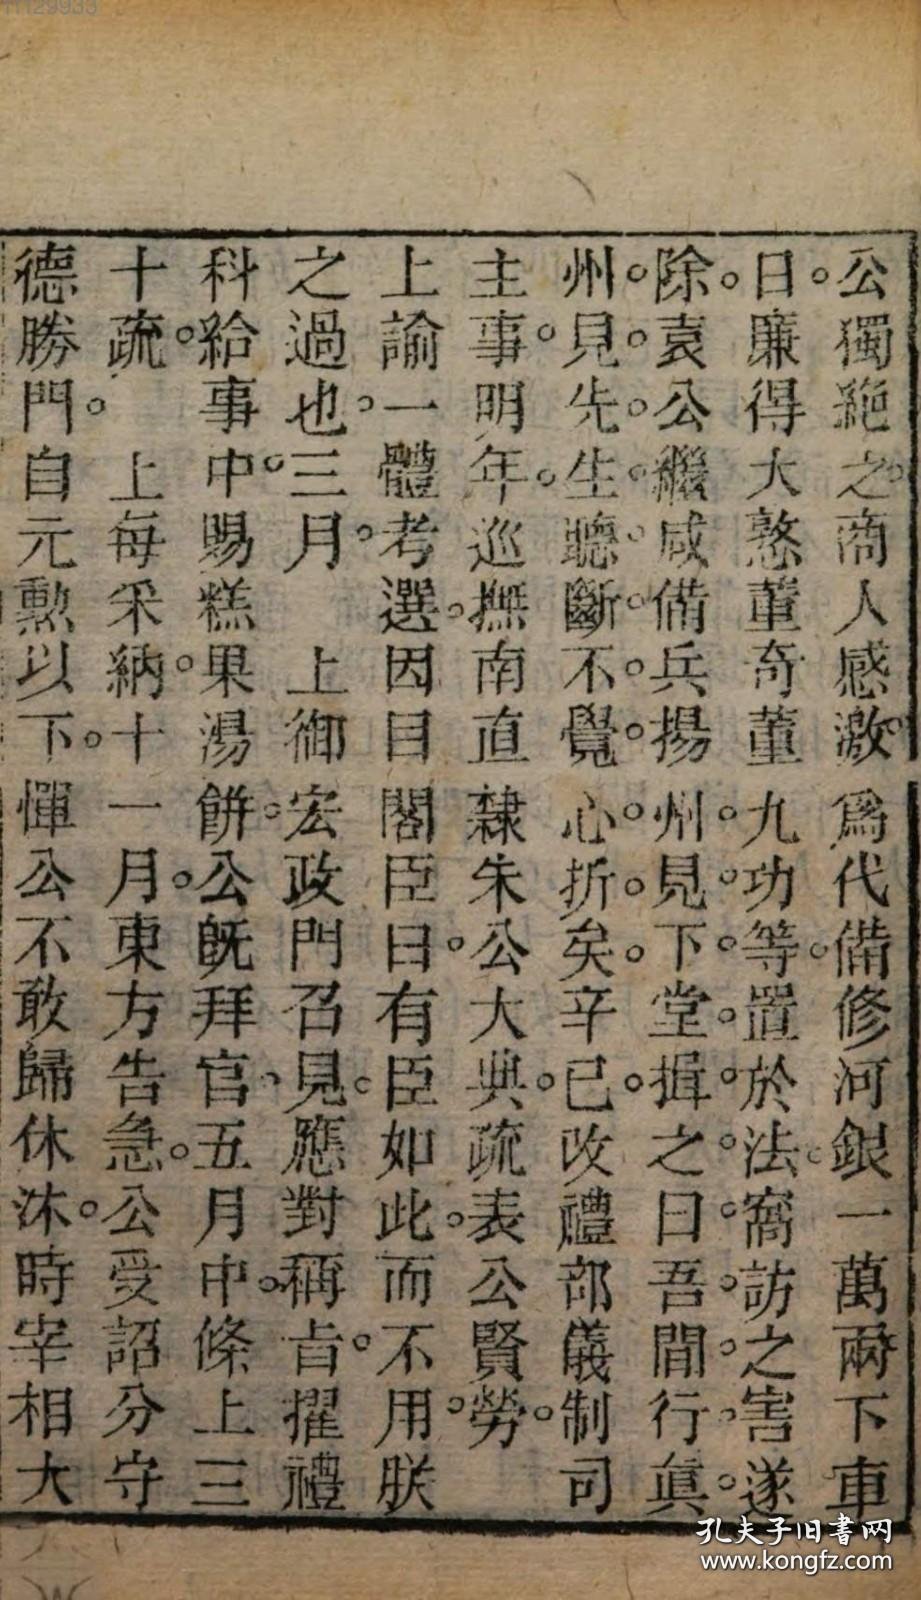 11129933
公獨絶之商人感激爲代備修河銀一萬兩下車
日廉得大憝董奇董九功等置於法窩訪之害遂
除袁公繼咸備兵揚州見下堂揖之曰吾間行眞
州見先生聽斷不覺心折矣辛巳改禮部儀制司
主事明年巡撫南直隸朱公大典疏表公賢勞
上諭一體考選因目閣臣曰有臣如此而不用朕
之過也三月 上御宏政門召見應對稱旨擢禮
科給事中賜糕果湯餅公旣拜官五月中條上三
十疏 上每采納十一月東方告急公受詔分守
德勝門自元勳以下憚公不敢歸休沐時宰相大
孔夫子旧書网
www.kongfz.com